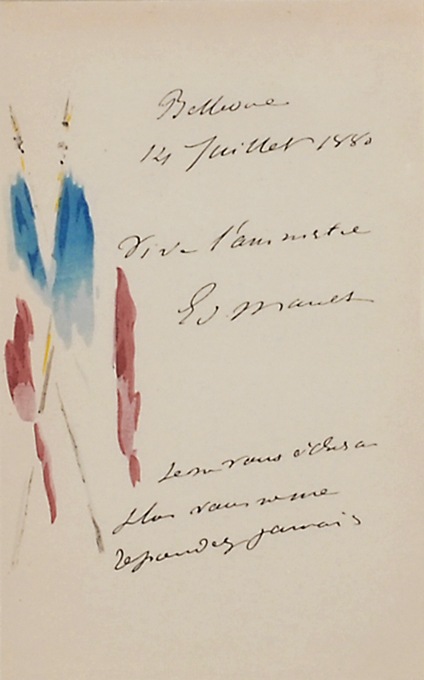 Bellevue
14 Juillet 1880
Vive l'amnistie
Ed Manet
Je ne vous écrirai
plus vous ne me
répondez jamais